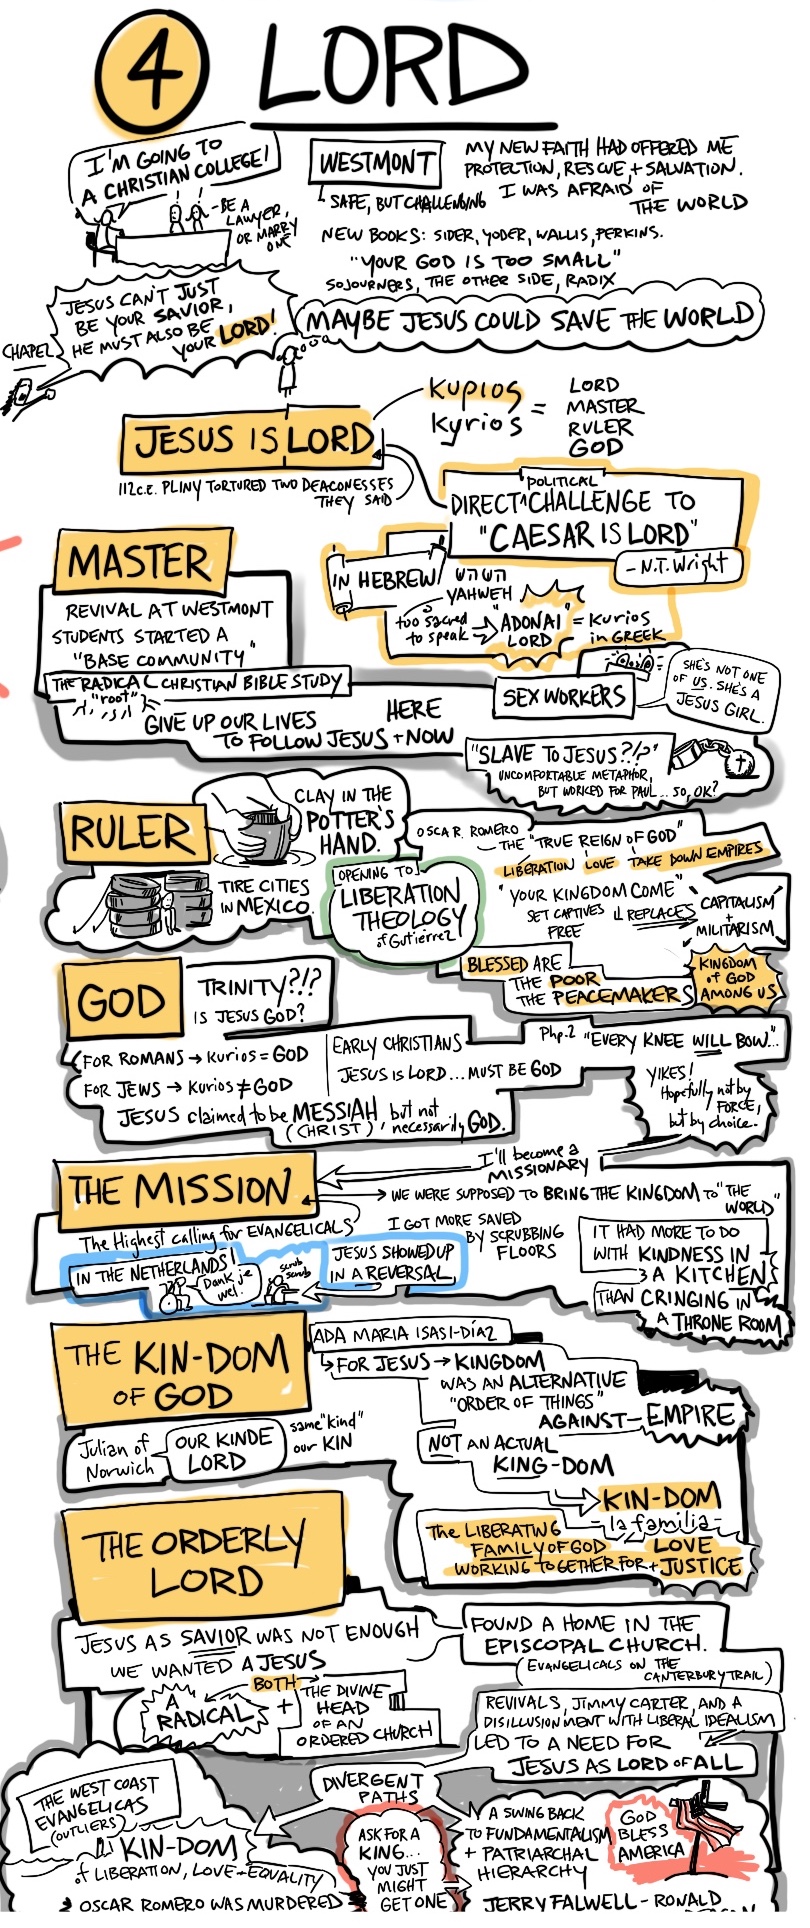 4 LORD
I'M GOING TO
A CHRISTIAN COLLEGE!
-BE A
LAWYER,
OR MARRY
ONE
WESTMONT
SAFE, BUT CHALLENGING
MY NEW FAITH HAD OFFERED ME
PROTECTION, RESCUE, + SALVATION.
I WAS AFRAID OF
THE WORLD
NEW BOOKS: SIDER, YODER, WALLIS, PERKINS.
"YOUR GOD IS TOO SMALL"
SOJOURNERS, THE OTHER SIDE, RADIX
CHAPEL
JESUS CAN'T JUST
BE YOUR SAVIOR,
HE MUST ALSO BE
YOUR LORD!
MAYBE JESUS COULD SAVE THE WORLD
JESUS IS LORD
Κυριος
Kyrios
=
LORD
MASTER
RULER
GOD
112 C.E. PLINY TORTURED TWO DEACONESSES
THEY SAID
POLITICAL
DIRECT ^ CHALLENGE TO
"CAESAR IS LORD"
- N.T. Wright
IN HEBREW
YAHWEH
too sacred
to speak → "ADONAI" = Kurios
LORD in GREEK
MASTER
REVIVAL AT WESTMONT
STUDENTS STARTED A
"BASE COMMUNITY"
THE RADICAL CHRISTIAN BIBLE STUDY
"root"
GIVE UP OUR LIVES HERE
TO FOLLOW JESUS + NOW
SEX WORKERS
SHE'S NOT ONE
OF US. SHE'S A
JESUS GIRL.
"SLAVE TO JESUS?!?"
UNCOMFORTABLE METAPHOR,
BUT WORKED FOR PAUL... SO, OK?
RULER
CLAY IN THE
POTTER'S
HAND.
TIRE CITIES
IN MEXICO.
OPENING TO
LIBERATION
THEOLOGY
of Gutierrez
OSCAR ROMERO
- THE "TRUE REIGN OF GOD"
LIBERATION LOVE TAKE DOWN EMPIRES
"YOUR KINGDOM COME"
SET CAPTIVES
FREE
REPLACES
CAPITALISM
+
MILITARISM
BLESSED ARE
THE POOR
THE PEACEMAKERS
KINGDOM
of GOD
AMONG US
GOD
TRINITY?!?
IS JESUS GOD?
FOR ROMANS → Kurios = GOD
FOR JEWS → Kurios ≠ GOD
EARLY CHRISTIANS
JESUS IS LORD... MUST BE GOD
JESUS claimed to be MESSIAH but not
(CHRIST), necessarily GOD.
Php. 2 "EVERY KNEE WILL BOW..."
YIKES!
Hopefully not by
FORCE,
but by choice.
I'll become a
MISSIONARY
THE MISSION
→ WE WERE SUPPOSED TO BRING THE KINGDOM TO "THE
WORLD"
The Highest calling for EVANGELICALS
I GOT MORE SAVED
BY SCRUBBING
FLOORS
IN THE NETHERLANDS!
Dank je
wel!
scrub
scrub
JESUS SHOWED UP
IN A REVERSAL
IT HAD MORE TO DO
WITH KINDNESS IN
A KITCHEN
THAN CRINGING IN
A THRONE ROOM
THE KIN-DOM
OF GOD
ADA MARIA ISASI-DÍAZ
FOR JESUS → KINGDOM
WAS AN ALTERNATIVE
"ORDER OF THINGS"
AGAINST - EMPIRE
NOT AN ACTUAL
KING-DOM
Julian of
Norwich
OUR KINDE
LORD
same "kind"
our KIN
KIN-DOM
- la familia -
The LIBERATING
FAMILY OF GOD
WORKING TOGETHER FOR + LOVE
JUSTICE
THE ORDERLY
LORD
JESUS AS SAVIOR WAS NOT ENOUGH
WE WANTED A JESUS
BOTH
A
RADICAL
+
THE DIVINE
HEAD
OF AN
ORDERED CHURCH
FOUND A HOME IN THE
EPISCOPAL CHURCH.
(EVANGELICALS ON THE
CANTERBURY TRAIL)
REVIVALS, JIMMY CARTER, AND A
DISILLUSIONMENT WITH LIBERAL IDEALISM
LED TO A NEED FOR
JESUS AS LORD OF ALL
DIVERGENT
PATHS
THE WEST COAST
EVANGELICAS
(OUTLIERS)
KIN-DOM
of LIBERATION, LOVE + EQUALITY
OSCAR ROMERO WAS MURDERED
ASK FOR A
KING...
YOU JUST
MIGHT
GET ONE
A SWING BACK
TO FUNDAMENTALISM
+ PATRIARCHAL
HIERARCHY
GOD
BLESS
AMERICA
JERRY FALWELL - RONALD